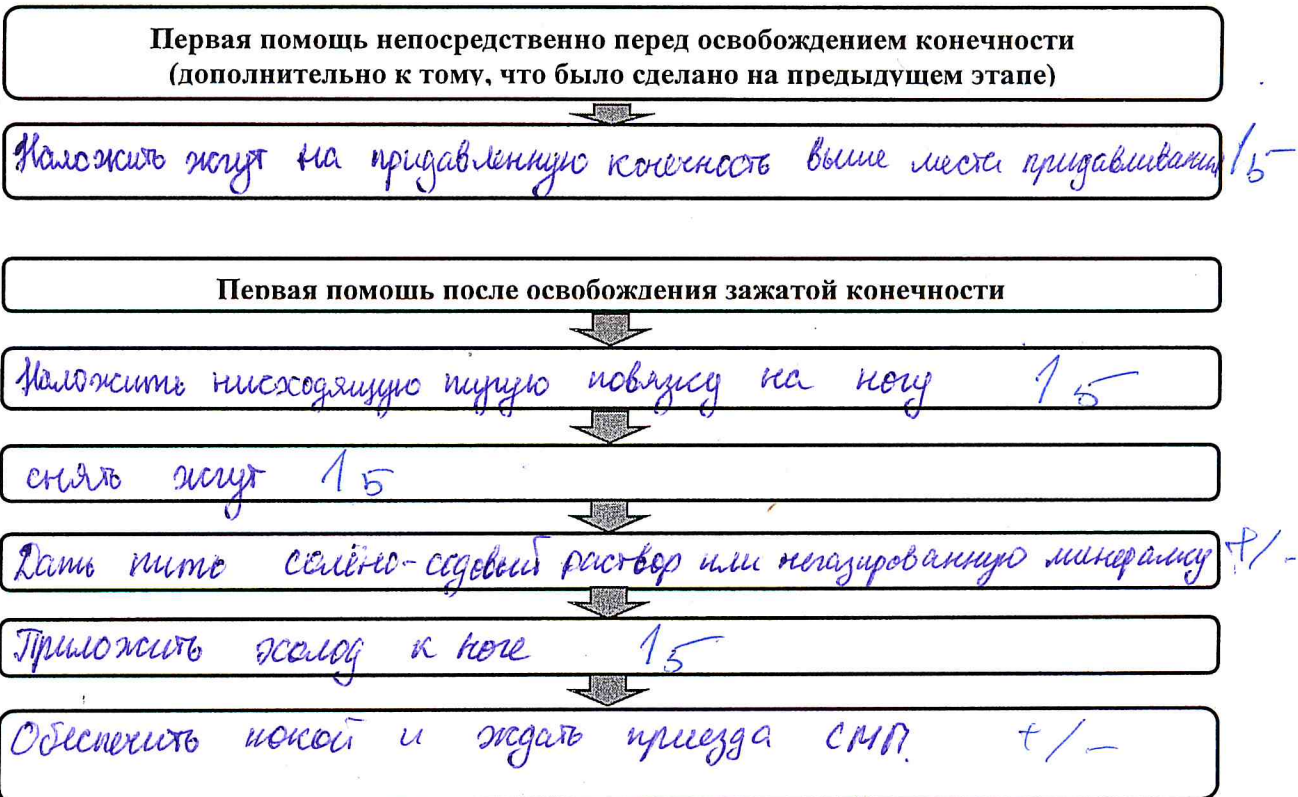 Первая помощь непосредственно перед освобождением конечности
(дополнительно к тому, что было сделано на предыдущем этапе)
Наложить жгут на придавленную конечность выше места придавливания 1б
Первая помощь после освобождения зажатой конечности
Наложить нисходящую тугую повязку на ногу 1б
снять жгут 1б
Дать пить солёно-содовый раствор или негазированную минералку +/-
Приложить холод к ноге 1б
Обеспечить покой и ждать приезда СМП. +/-